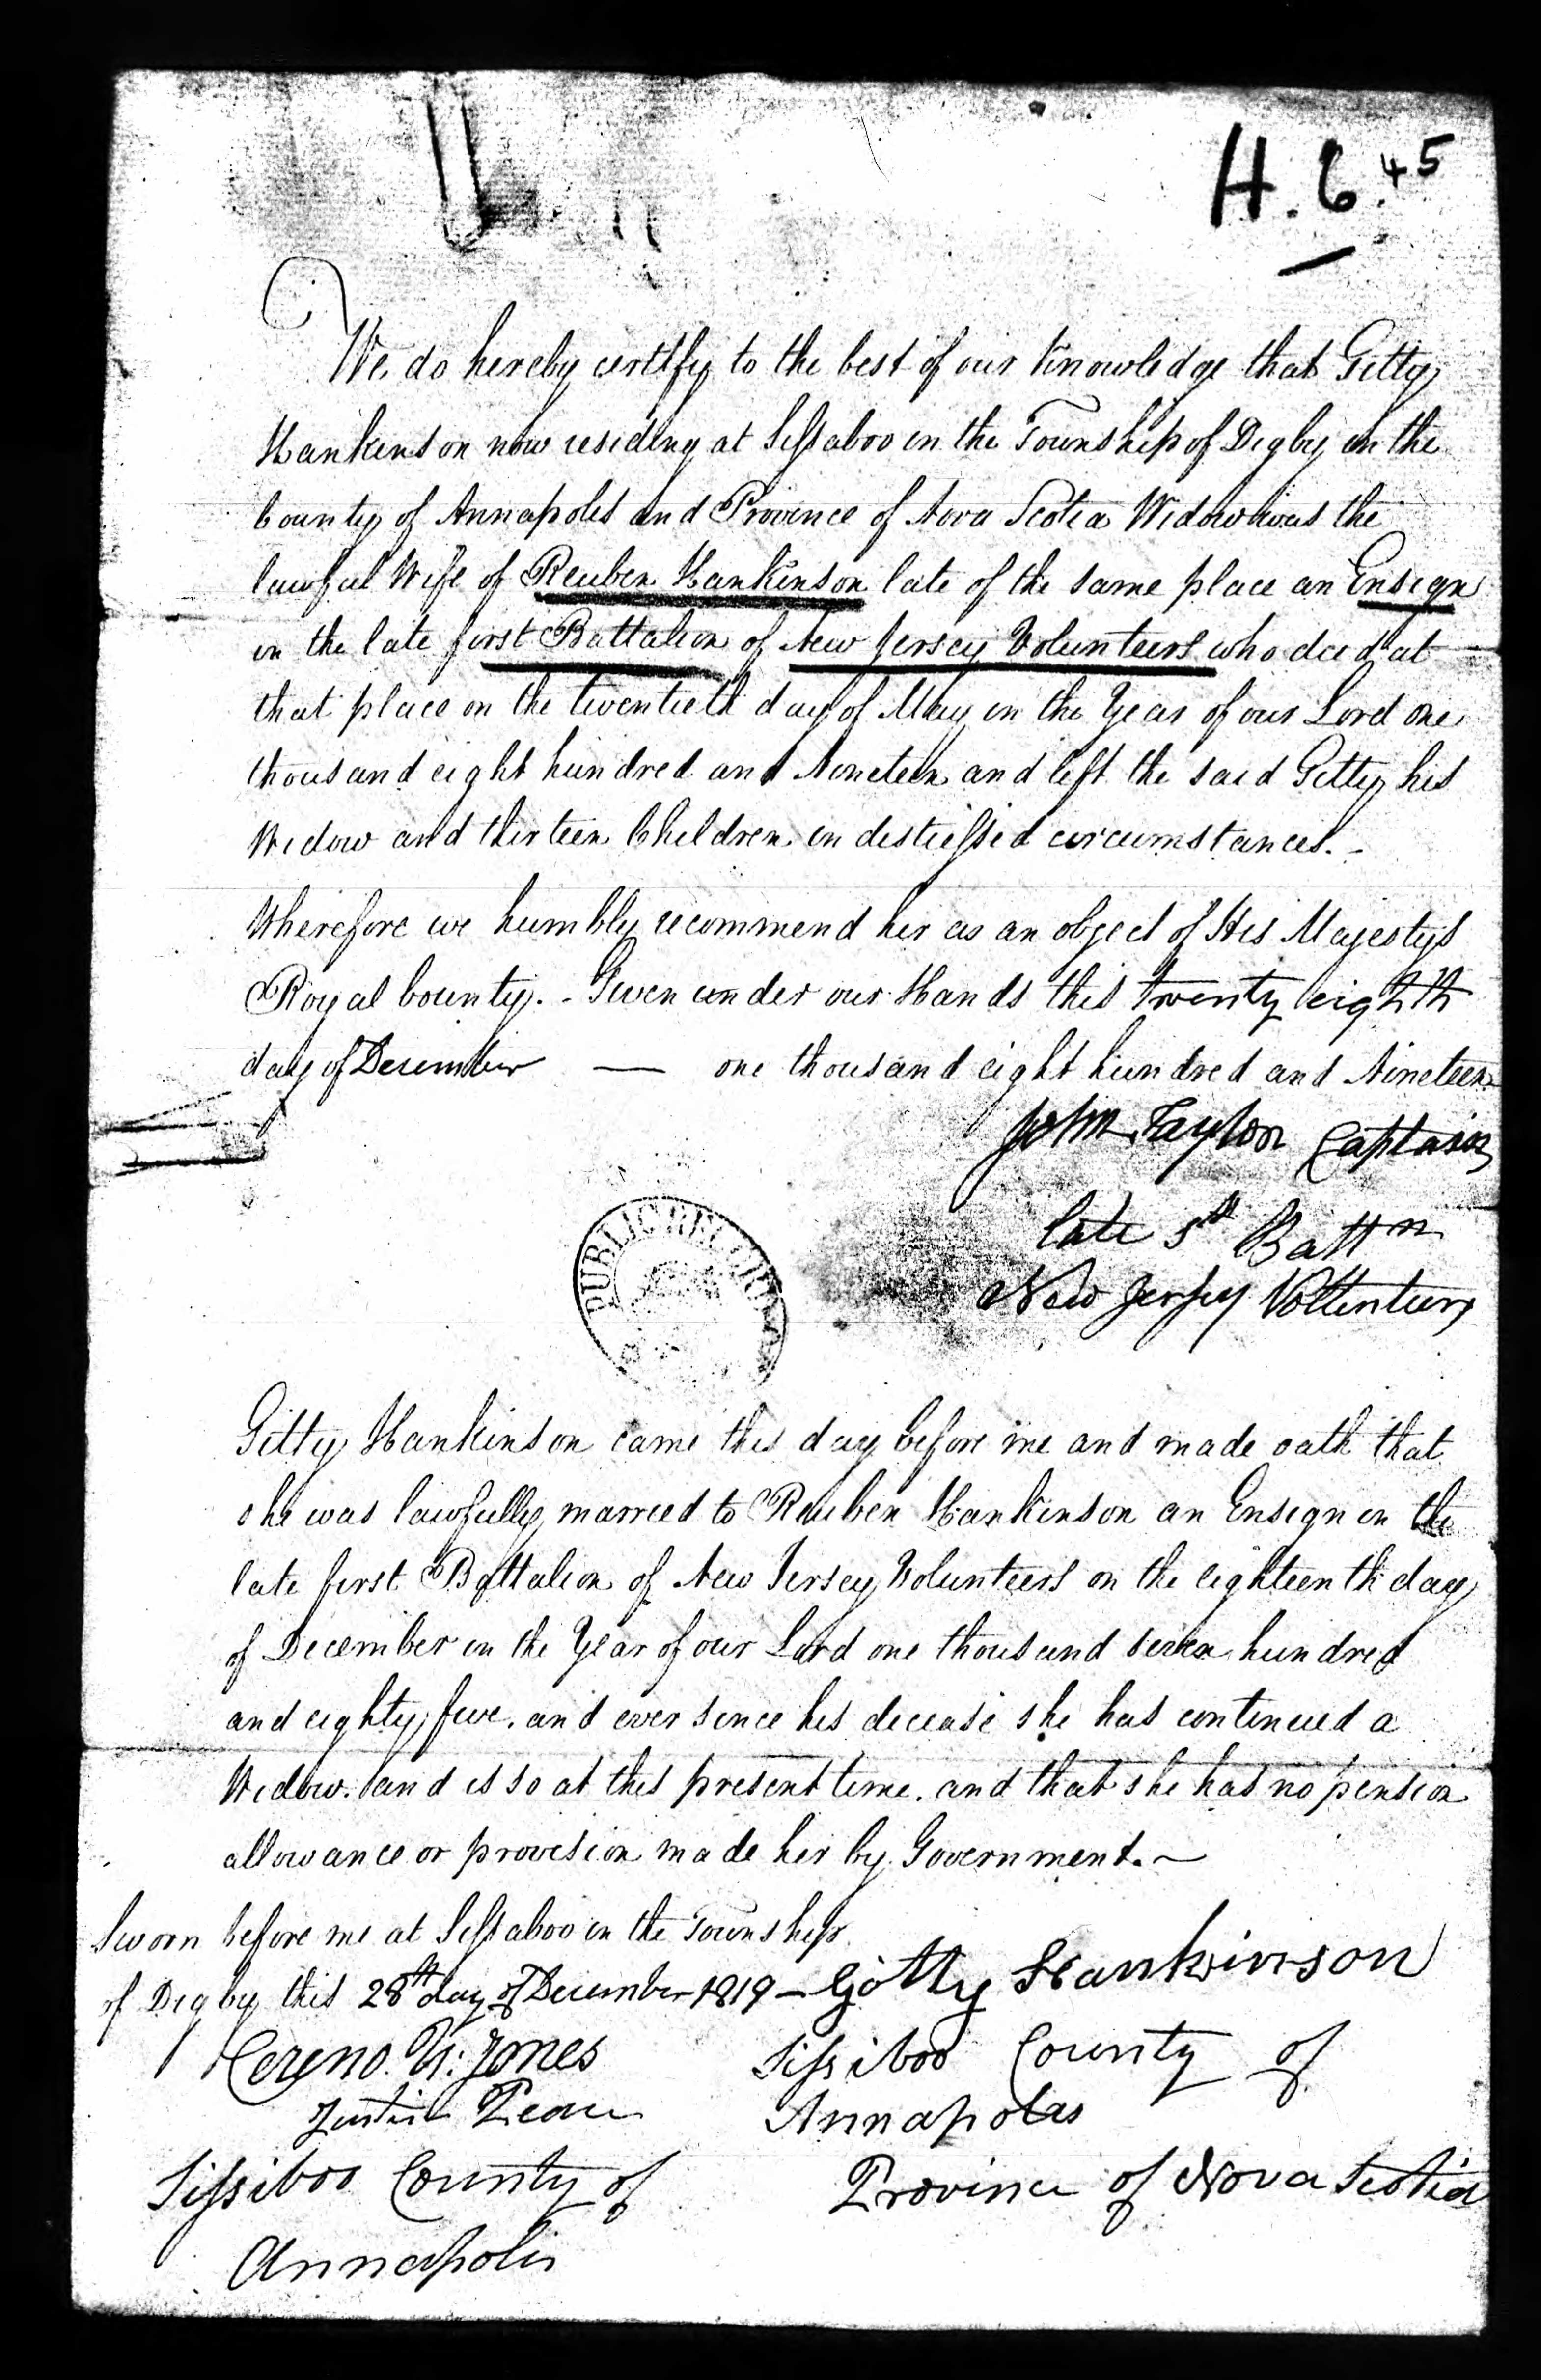 H. 6. 45
We do hereby certify to the best of our Knowledge that Gitty
Hankinson now residing at Sissaboo in the Township of Digby in the
County of Annapolis and Province of Nova Scotia Widow was the
lawful Wife of Reuben Hankinson late of the same place an Ensign
in the late first Battalion of New Jersey Volunteers who died at
that place on the twentieth day of May in the Year of our Lord one
thousand eight hundred and Nineteen and left the said Gitty his
Widow and thirteen Children in distressed circumstances. -
Wherefore we humbly recommend her as an object of His Majestys
Royal bounty. - Given under our Hands this twenty eighth
day of December — one thousand eight hundred and Nineteen
John Taylor Captain
late Battn
New Jersey Vollenteers
PUBLIC RECORD
Gitty Hankinson came this day before me and made oath that
she was lawfully married to Reuben Hankinson an Ensign in the
late first Battalion of New Jersey Volunteers on the eighteenth day
of December in the Year of our Lord one thousand seven hundred
and eighty five. and ever since his decease she has continued a
Widow. and is so at this present time. and that she has no pension
allowance or provision made her by Government. —
Sworn before me at Sissaboo in the Township
of Digby this 28th day of December 1819 — Gitty Hankinson
Cereno U: Jones
Justice Peace
Sissiboo County of
Annapolis
Sissiboo County of
Annapolis
Province of Nova Scotia